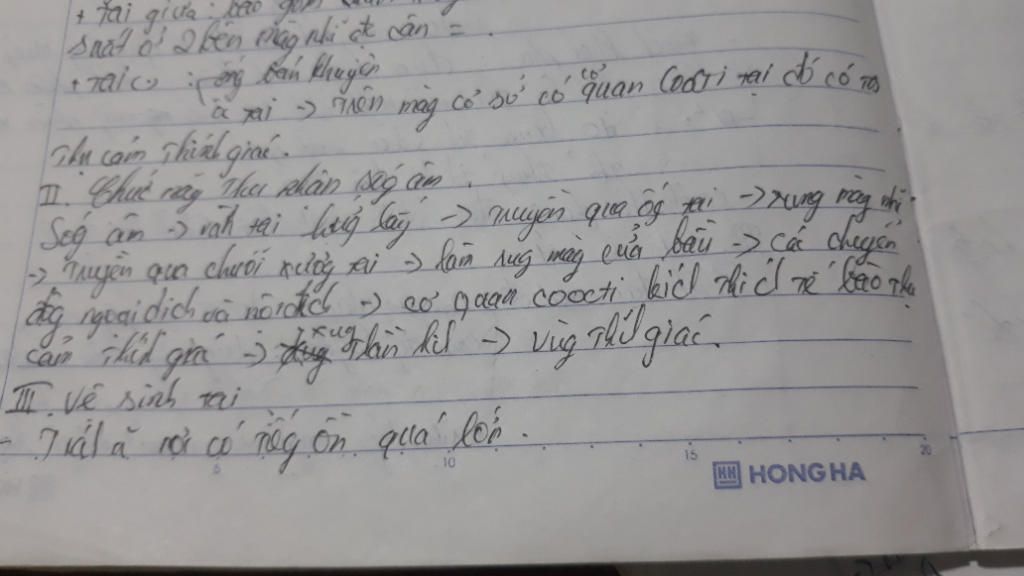 + tai giữa: bao gồm
suất ở 2 bên màg nhĩ đt cân = .
+ Tai (-) : ốg bán khuyên
ốc tai → Trên màg cơ sở có cơ quan Coocti tại đó có tb
thụ cảm thính giác.
II. Chức năg thu nhận sóg âm.
Sóg âm → vành tai hứg lấy → truyền qua ốg tai → rung màg nhĩ
→ truyền qua chuỗi xươg tai → làm rug màg cửa bầu → các chuyển
độg ngoại dịch và nội dịch → cơ quan coocti kích thích tế bào thụ
cảm thính giác → xug thần kih → vùg thíh giác.
III. Vệ sinh tai
- Tráh nơi có tiếg ồn quá lớn.
5 10 15 20
HH HONG HA